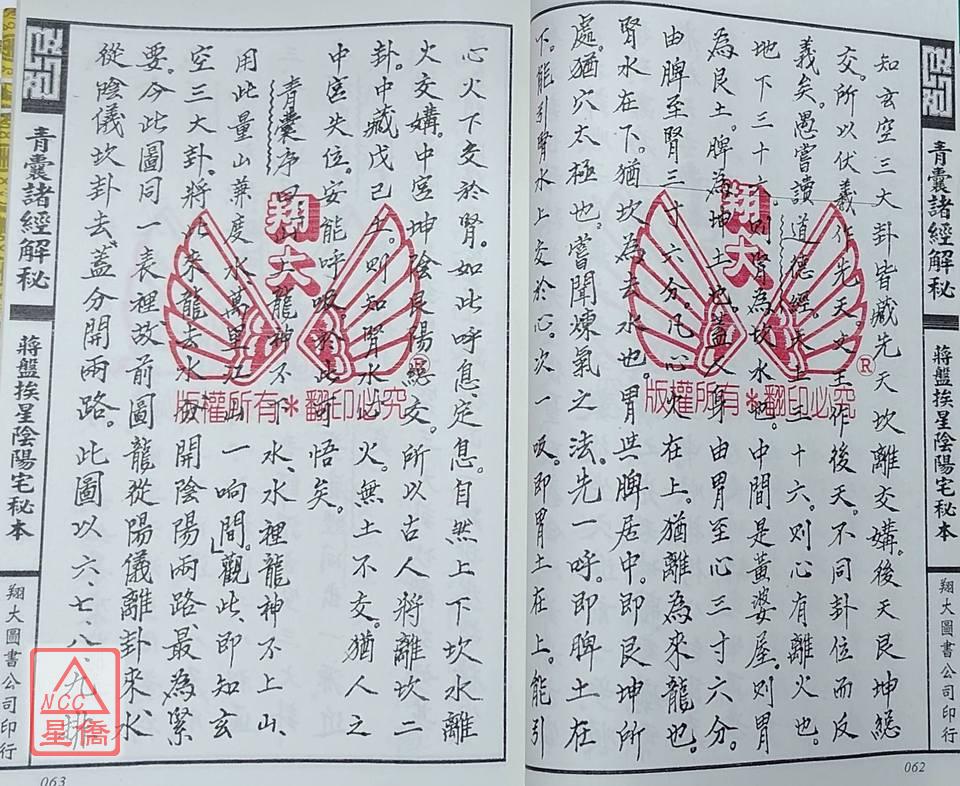 青囊諸經解秘
蔣盤挨星陰陽宅秘本
翔大圖書公司印行
知玄空三大卦皆藏先天坎離交媾。後天艮坤總
交。所以伏羲作先天。文王作後天。不同卦位而反
義矣。愚嘗讀道德經。天上三十六。則心有離火也。
地下三十六。則腎為坎水也。中間是黃婆屋。則胃
為艮土。脾為坤土也。蓋人身由胃至心三寸六分。
由脾至腎三寸六分。凡心火在上。猶離為來龍也。
腎水在下。猶坎為去水也。胃與脾居中。即艮坤所
處。猶穴太極也。嘗聞煉氣之法。先一呼。即脾土在
下。能引腎水上交於心。次一吸。即胃土在上。能引
062
心火下交於腎。如此呼息、定息。自然上下坎水離
火交媾。中宮坤陰艮陽總交。所以古人將離坎二
卦。中藏戊己土。則知腎水心火。無土不交。猶人之
中宮失位。安能呼吸於此可悟矣。
青囊序曰山上龍神不下水、水裡龍神不上山、
用此量山兼度水、萬里江山一响間。」觀此、即知玄
空三大卦。將此來龍去水、做開陰陽兩路、最為緊
要。今此圖同一表裡故、前圖龍從陽儀離卦來、水
從陰儀坎卦去、蓋分開兩路。此圖以六、七、八、九排
063
青囊諸經解秘
蔣盤挨星陰陽宅秘本
翔大圖書公司印行
翔大
®
版權所有*翻印必究
翔大
®
版權所有*翻印必究
NCC
星僑